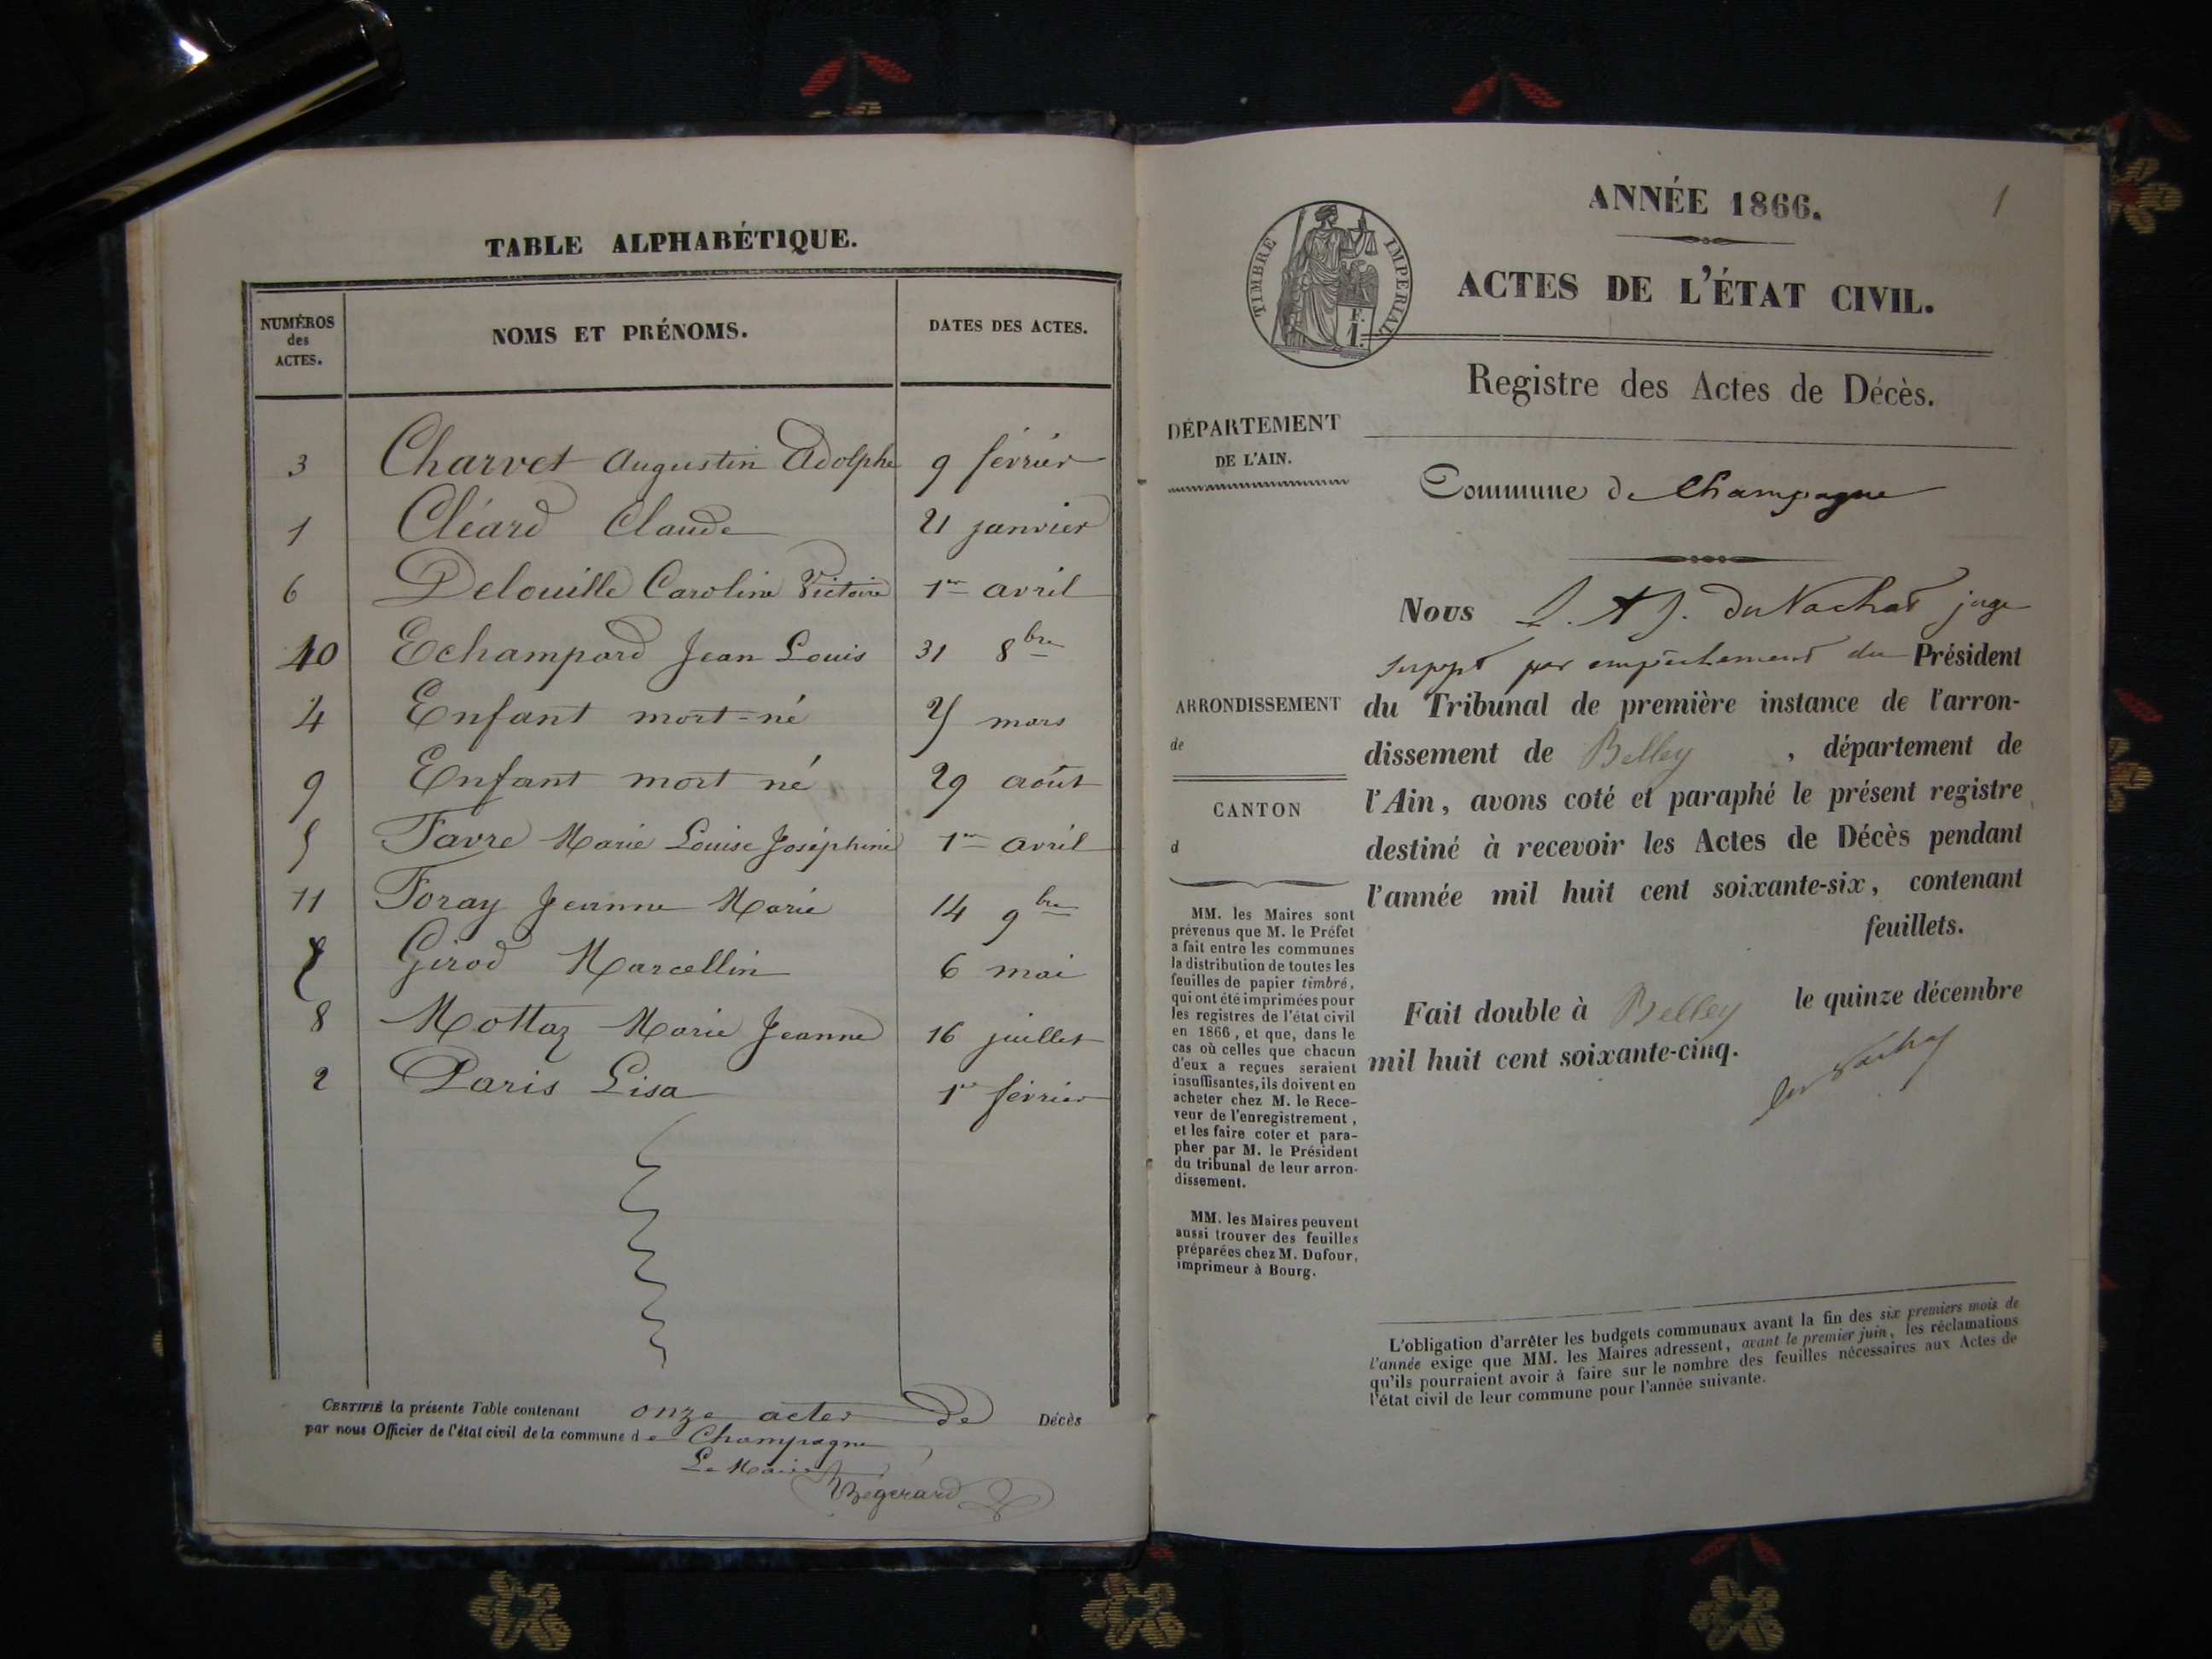 TABLE ALPHABÉTIQUE.
NUMÉROS des ACTES. NOMS ET PRÉNOMS. DATES DES ACTES.
3 Charvet Augustin Adolphe 9 février
1 Cléard Claude 21 janvier
6 Delouille Caroline Victoire 1er avril
10 Echampard Jean Louis 31 8bre
4 Enfant mort-né mars
9 Enfant mort né 29 août
5 Favre Marie Louise Joséphine 1er avril
11 Foray Jeanne Marie 14 9bre
7 Girod Marcellin 6 mai
8 Mottaz Marie Jeanne 16 juillet
2 Paris Lisa 1er février
CERTIFIÉ la présente Table contenant onze actes de Décès
par nous Officier de l'état civil de la commune de Champagne
Le Maire
1
ANNÉE 1866.
TIMBRE IMPERIAL
F.
1.
ACTES DE L'ÉTAT CIVIL.
Registre des Actes de Décès.
DÉPARTEMENT
DE L'AIN.
Commune de Champagne
Nous L. A J. du Nachat juge
suppt par empêchement du Président
du Tribunal de première instance de l'arron-
dissement de Belley , département de
l'Ain, avons coté et paraphé le présent registre
destiné à recevoir les Actes de Décès pendant
l'année mil huit cent soixante-six, contenant
feuillets.
Fait double à Belley le quinze décembre
mil huit cent soixante-cinq.
du Nachat
ARRONDISSEMENT
de
CANTON
d
MM. les Maires sont
prévenus que M. le Préfet
a fait entre les communes
la distribution de toutes les
feuilles de papier timbré,
qui ont été imprimées pour
les registres de l'état civil
en 1866, et que, dans le
cas où celles que chacun
d'eux a reçues seraient
insuffisantes, ils doivent en
acheter chez M. le Rece-
veur de l'enregistrement,
et les faire coter et para-
pher par M. le Président
du tribunal de leur arron-
dissement.
MM. les Maires peuvent
aussi trouver des feuilles
préparées chez M. Dufour,
imprimeur à Bourg.
L'obligation d'arrêter les budgets communaux avant la fin des six premiers mois de
l'année exige que MM. les Maires adressent, avant le premier juin, les réclamations
qu'ils pourraient avoir à faire sur le nombre des feuilles nécessaires aux Actes de
l'état civil de leur commune pour l'année suivante.